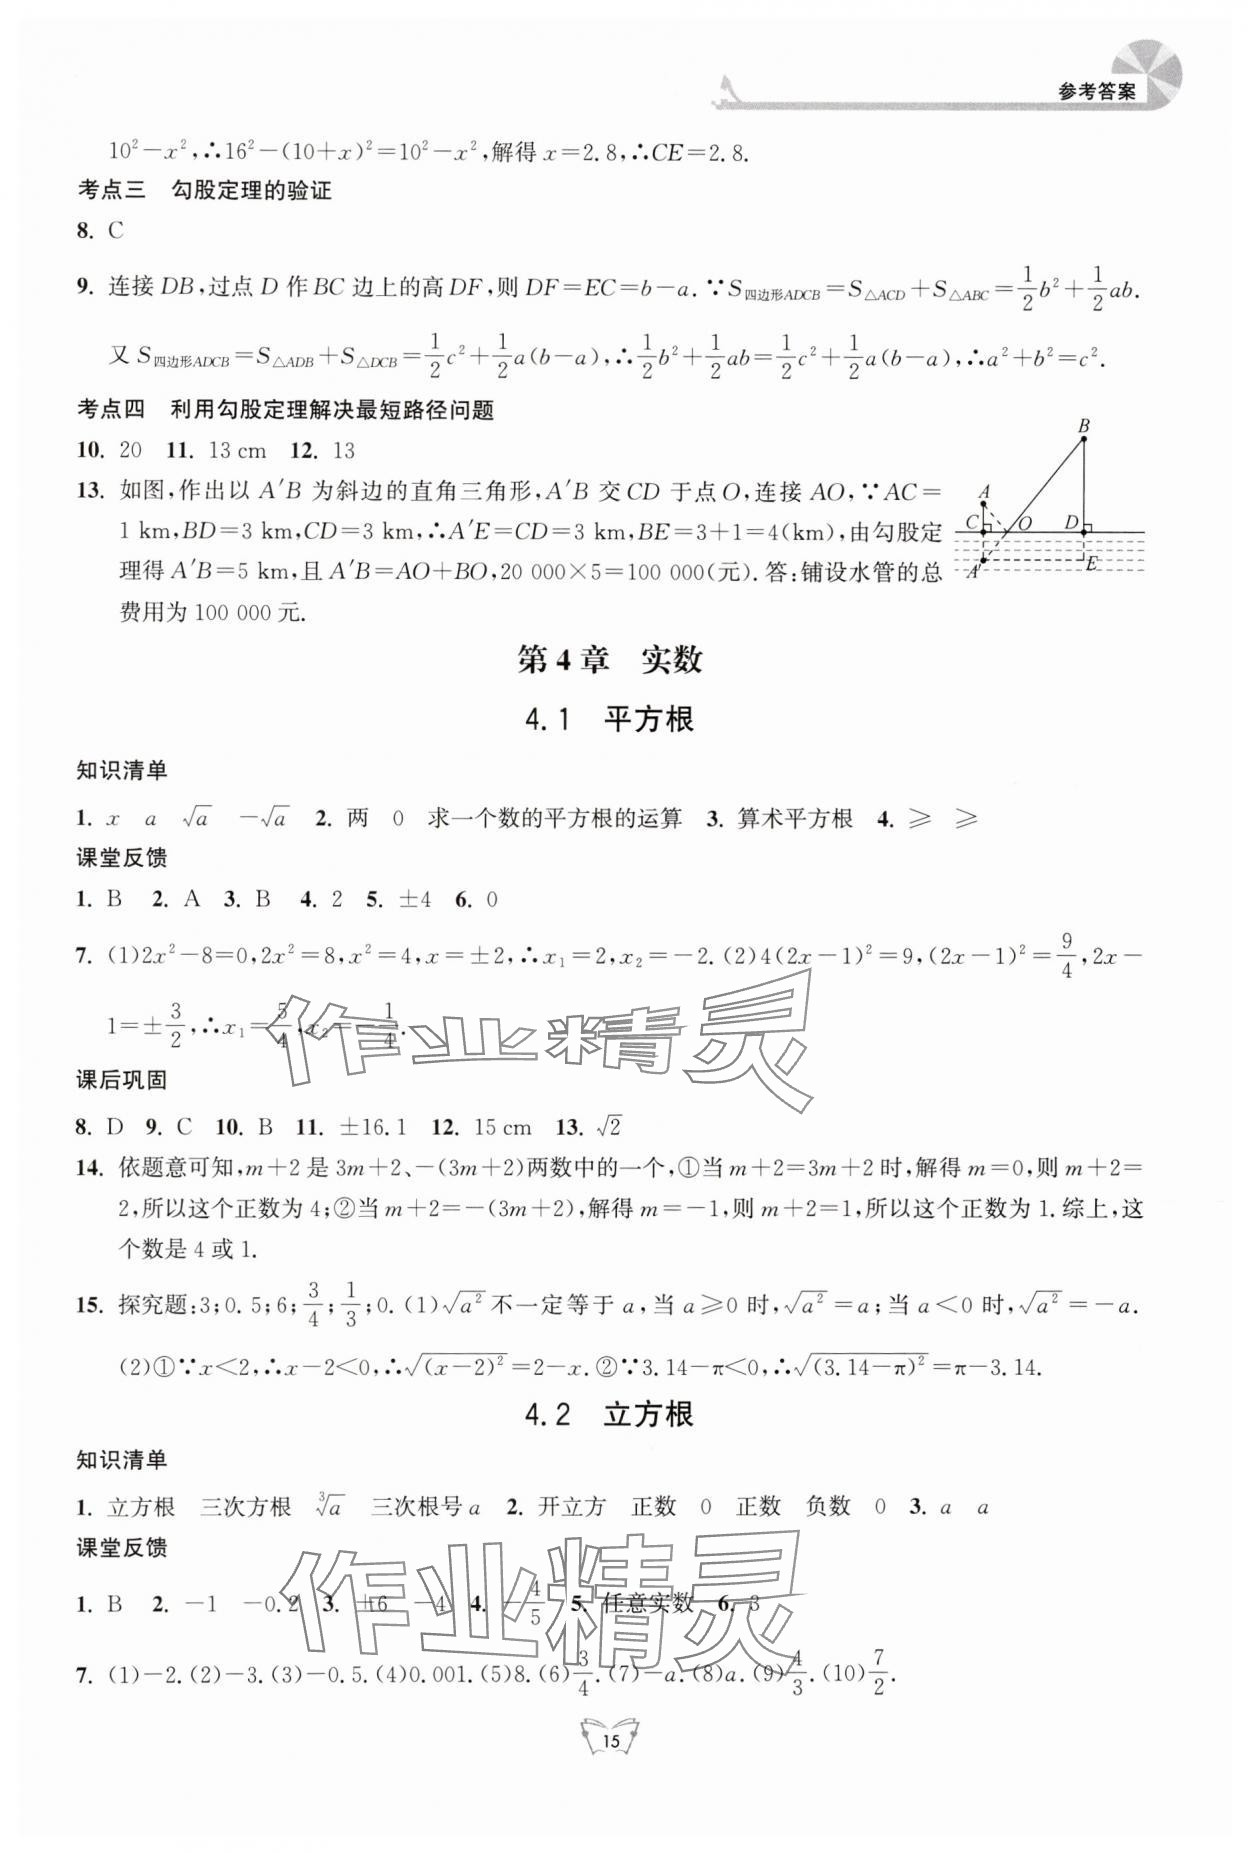 参考答案
10²－x²,∴16²－(10＋x)²＝10²－x²,解得 x＝2.8,∴CE＝2.8.
考点三　勾股定理的验证
8. C
9. 连接 DB,过点 D 作 BC 边上的高 DF,则 DF＝EC＝b－a.∵S四边形ADCB＝S△ACD＋S△ABC＝1/2b²＋1/2ab.
又 S四边形ADCB＝S△ADB＋S△DCB＝1/2c²＋1/2a(b－a),∴1/2b²＋1/2ab＝1/2c²＋1/2a(b－a),∴a²＋b²＝c².
考点四　利用勾股定理解决最短路径问题
10. 20　11. 13 cm　12. 13
13. 如图,作出以 A′B 为斜边的直角三角形,A′B 交 CD 于点 O,连接 AO,∵AC＝
1 km,BD＝3 km,CD＝3 km,∴A′E＝CD＝3 km,BE＝3＋1＝4(km),由勾股定
理得 A′B＝5 km,且 A′B＝AO＋BO,20 000×5＝100 000(元).答:铺设水管的总
费用为 100 000 元.
B
A
C
O
D
A′
E
第 4 章　实数
4.1　平方根
知识清单
1. x　a　√a　－√a　2. 两　0　求一个数的平方根的运算　3. 算术平方根　4. ≥　≥
课堂反馈
1. B　2. A　3. B　4. 2　5. ±4　6. 0
7. (1)2x²－8＝0,2x²＝8,x²＝4,x＝±2,∴x₁＝2,x₂＝－2.(2)4(2x－1)²＝9,(2x－1)²＝9/4,2x－
1＝±3/2,∴x₁＝5/4,x₂＝－1/4.
课后巩固
8. D　9. C　10. B　11. ±16.1　12. 15 cm　13. √2
14. 依题意可知,m＋2 是 3m＋2、－(3m＋2)两数中的一个,①当 m＋2＝3m＋2 时,解得 m＝0,则 m＋2＝
2,所以这个正数为 4;②当 m＋2＝－(3m＋2),解得 m＝－1,则 m＋2＝1,所以这个正数为 1.综上,这
个数是 4 或 1.
15. 探究题:3;0.5;6;3/4;1/3;0.(1)√a² 不一定等于 a,当 a≥0 时,√a²＝a;当 a＜0 时,√a²＝－a.
(2)①∵x＜2,∴x－2＜0,∴√(x－2)²＝2－x.②∵3.14－π＜0,∴√(3.14－π)²＝π－3.14.
4.2　立方根
知识清单
1. 立方根　三次方根　³√a　三次根号 a　2. 开立方　正数　0　正数　负数　0　3. a　a
课堂反馈
1. B　2. －1　－0.2　3. ±6　－4　4. －4/5　5. 任意实数　6. 3
7. (1)－2.(2)－3.(3)－0.5.(4)0.001.(5)8.(6)3/4.(7)－a.(8)a.(9)4/3.(10)7/2.
15
作业精灵
作业精灵